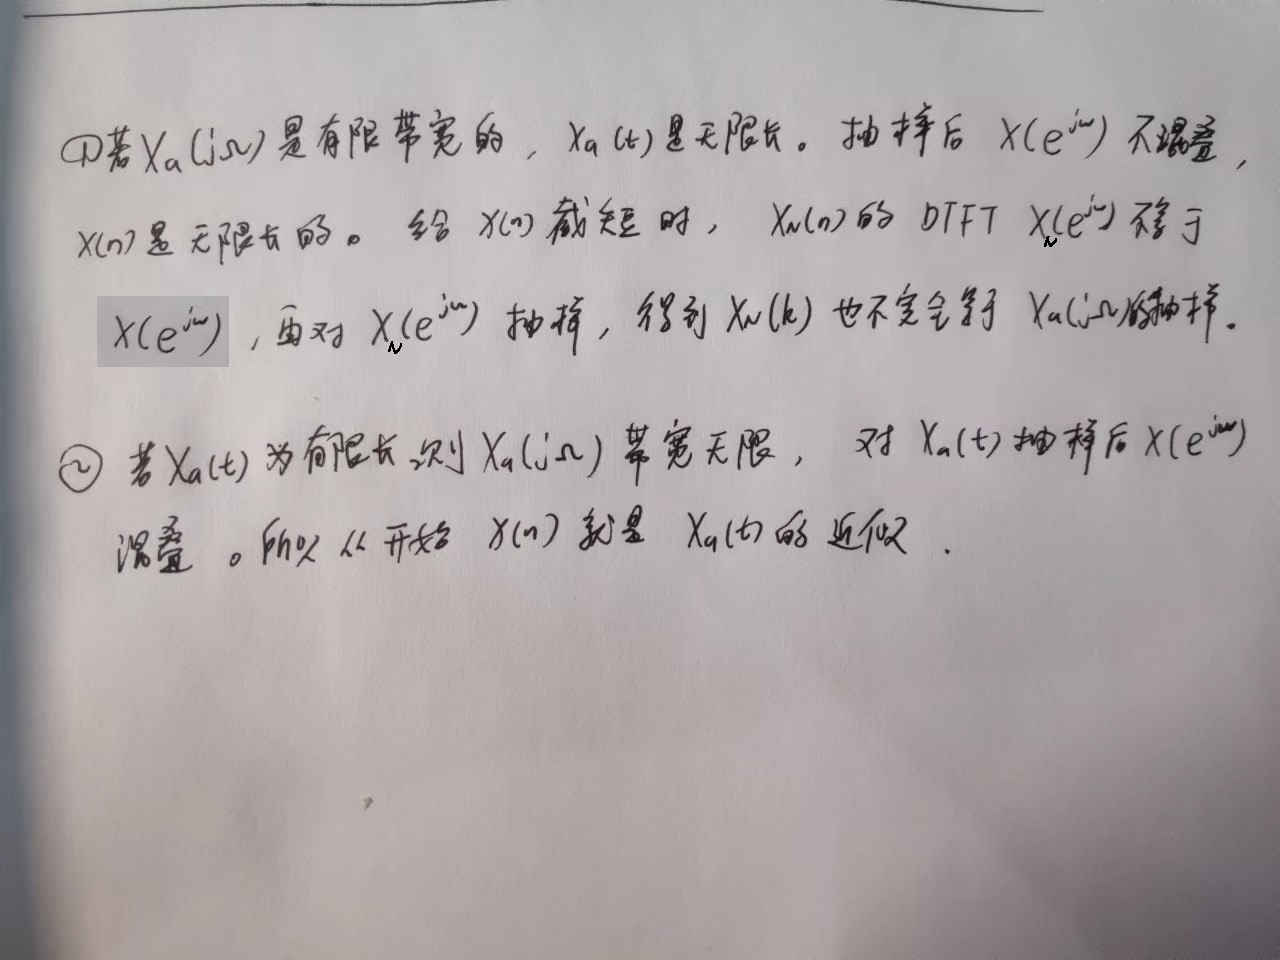 ①若Xa(jΩ)是有限带宽的，Xa(t)是无限长。抽样后 X(e^jω)不混叠，
X(n)是无限长的。给X(n)截短时，XN(n)的DTFT XN(e^jω)不等于
X(e^jω)，再对XN(e^jω)抽样，得到XN(k)也不完全等于Xa(jΩ)的抽样。
②若Xa(t)为有限长，则Xa(jΩ)带宽无限，对Xa(t)抽样后X(e^jω)
混叠。所以从开始X(n)就是Xa(t)的近似.